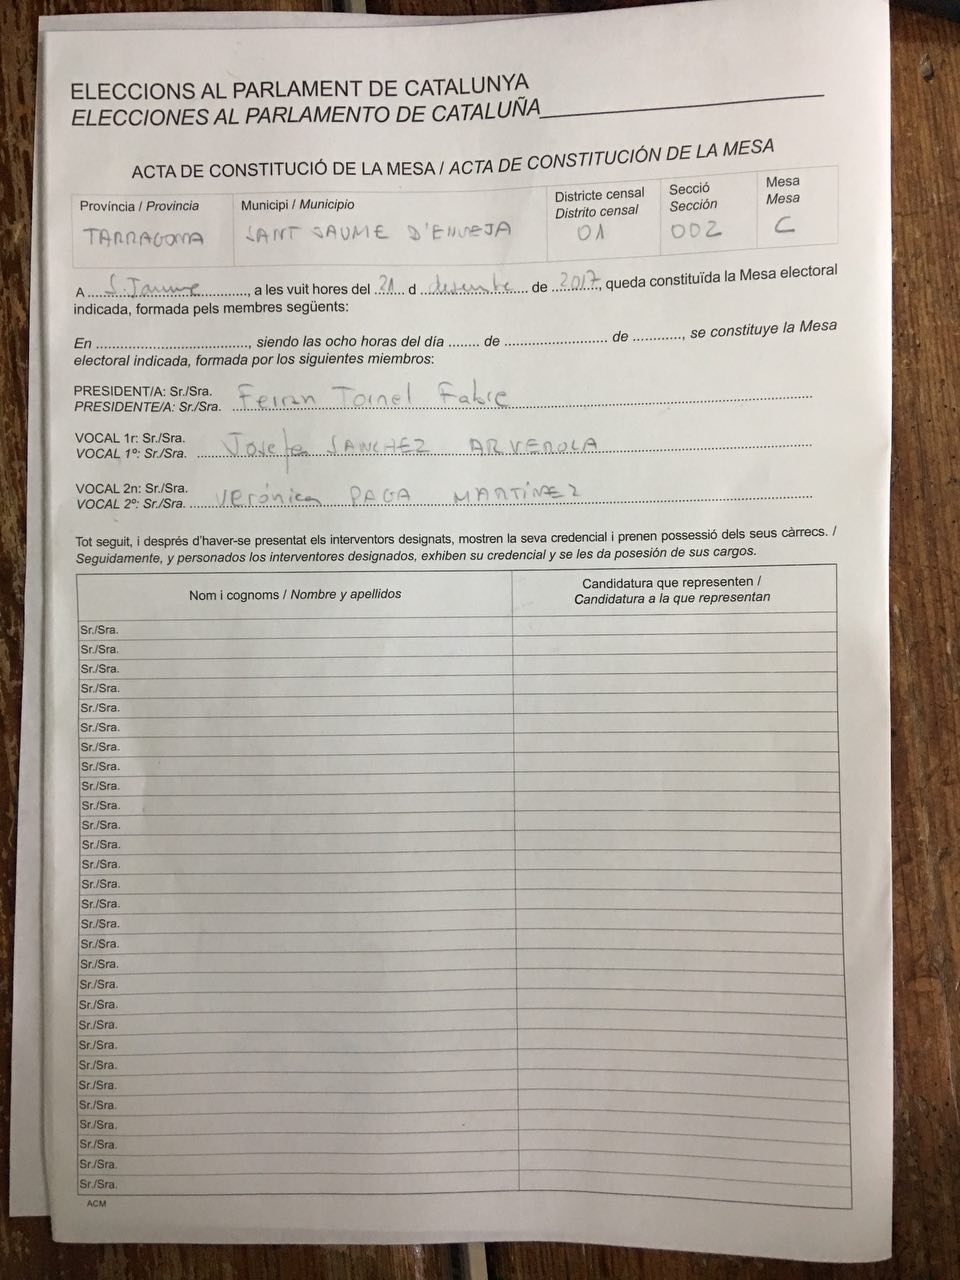 ELECCIONS AL PARLAMENT DE CATALUNYA
ELECCIONES AL PARLAMENTO DE CATALUÑA
ACTA DE CONSTITUCIÓ DE LA MESA / ACTA DE CONSTITUCIÓN DE LA MESA
Província / Provincia Municipi / Municipio Districte censal Distrito censal Secció Sección Mesa Mesa
TARRAGONA SANT JAUME D'ENVEJA 01 002 C
A S. Jaume, a les vuit hores del 21 d desembre de 2017, queda constituïda la Mesa electoral
indicada, formada pels membres següents:
En ............, siendo las ocho horas del día ........ de ............ de ............, se constituye la Mesa
electoral indicada, formada por los siguientes miembros:
PRESIDENT/A: Sr./Sra.
PRESIDENTE/A: Sr./Sra. Ferran Tornel Fabre
VOCAL 1r: Sr./Sra.
VOCAL 1º: Sr./Sra. Josefa SANCHEZ
VOCAL 2n: Sr./Sra.
VOCAL 2º: Sr./Sra. Verónica MARTÍNEZ
Tot seguit, i després d'haver-se presentat els interventors designats, mostren la seva credencial i prenen possessió dels seus càrrecs. /
Seguidamente, y personados los interventores designados, exhiben su credencial y se les da posesión de sus cargos.
Nom i cognoms / Nombre y apellidos Candidatura que representen / Candidatura a la que representan
Sr./Sra.
Sr./Sra.
Sr./Sra.
Sr./Sra.
Sr./Sra.
Sr./Sra.
Sr./Sra.
Sr./Sra.
Sr./Sra.
Sr./Sra.
Sr./Sra.
Sr./Sra.
Sr./Sra.
Sr./Sra.
Sr./Sra.
Sr./Sra.
Sr./Sra.
Sr./Sra.
Sr./Sra.
Sr./Sra.
Sr./Sra.
Sr./Sra.
Sr./Sra.
Sr./Sra.
Sr./Sra.
Sr./Sra.
Sr./Sra.
Sr./Sra.
Sr./Sra.
ACM